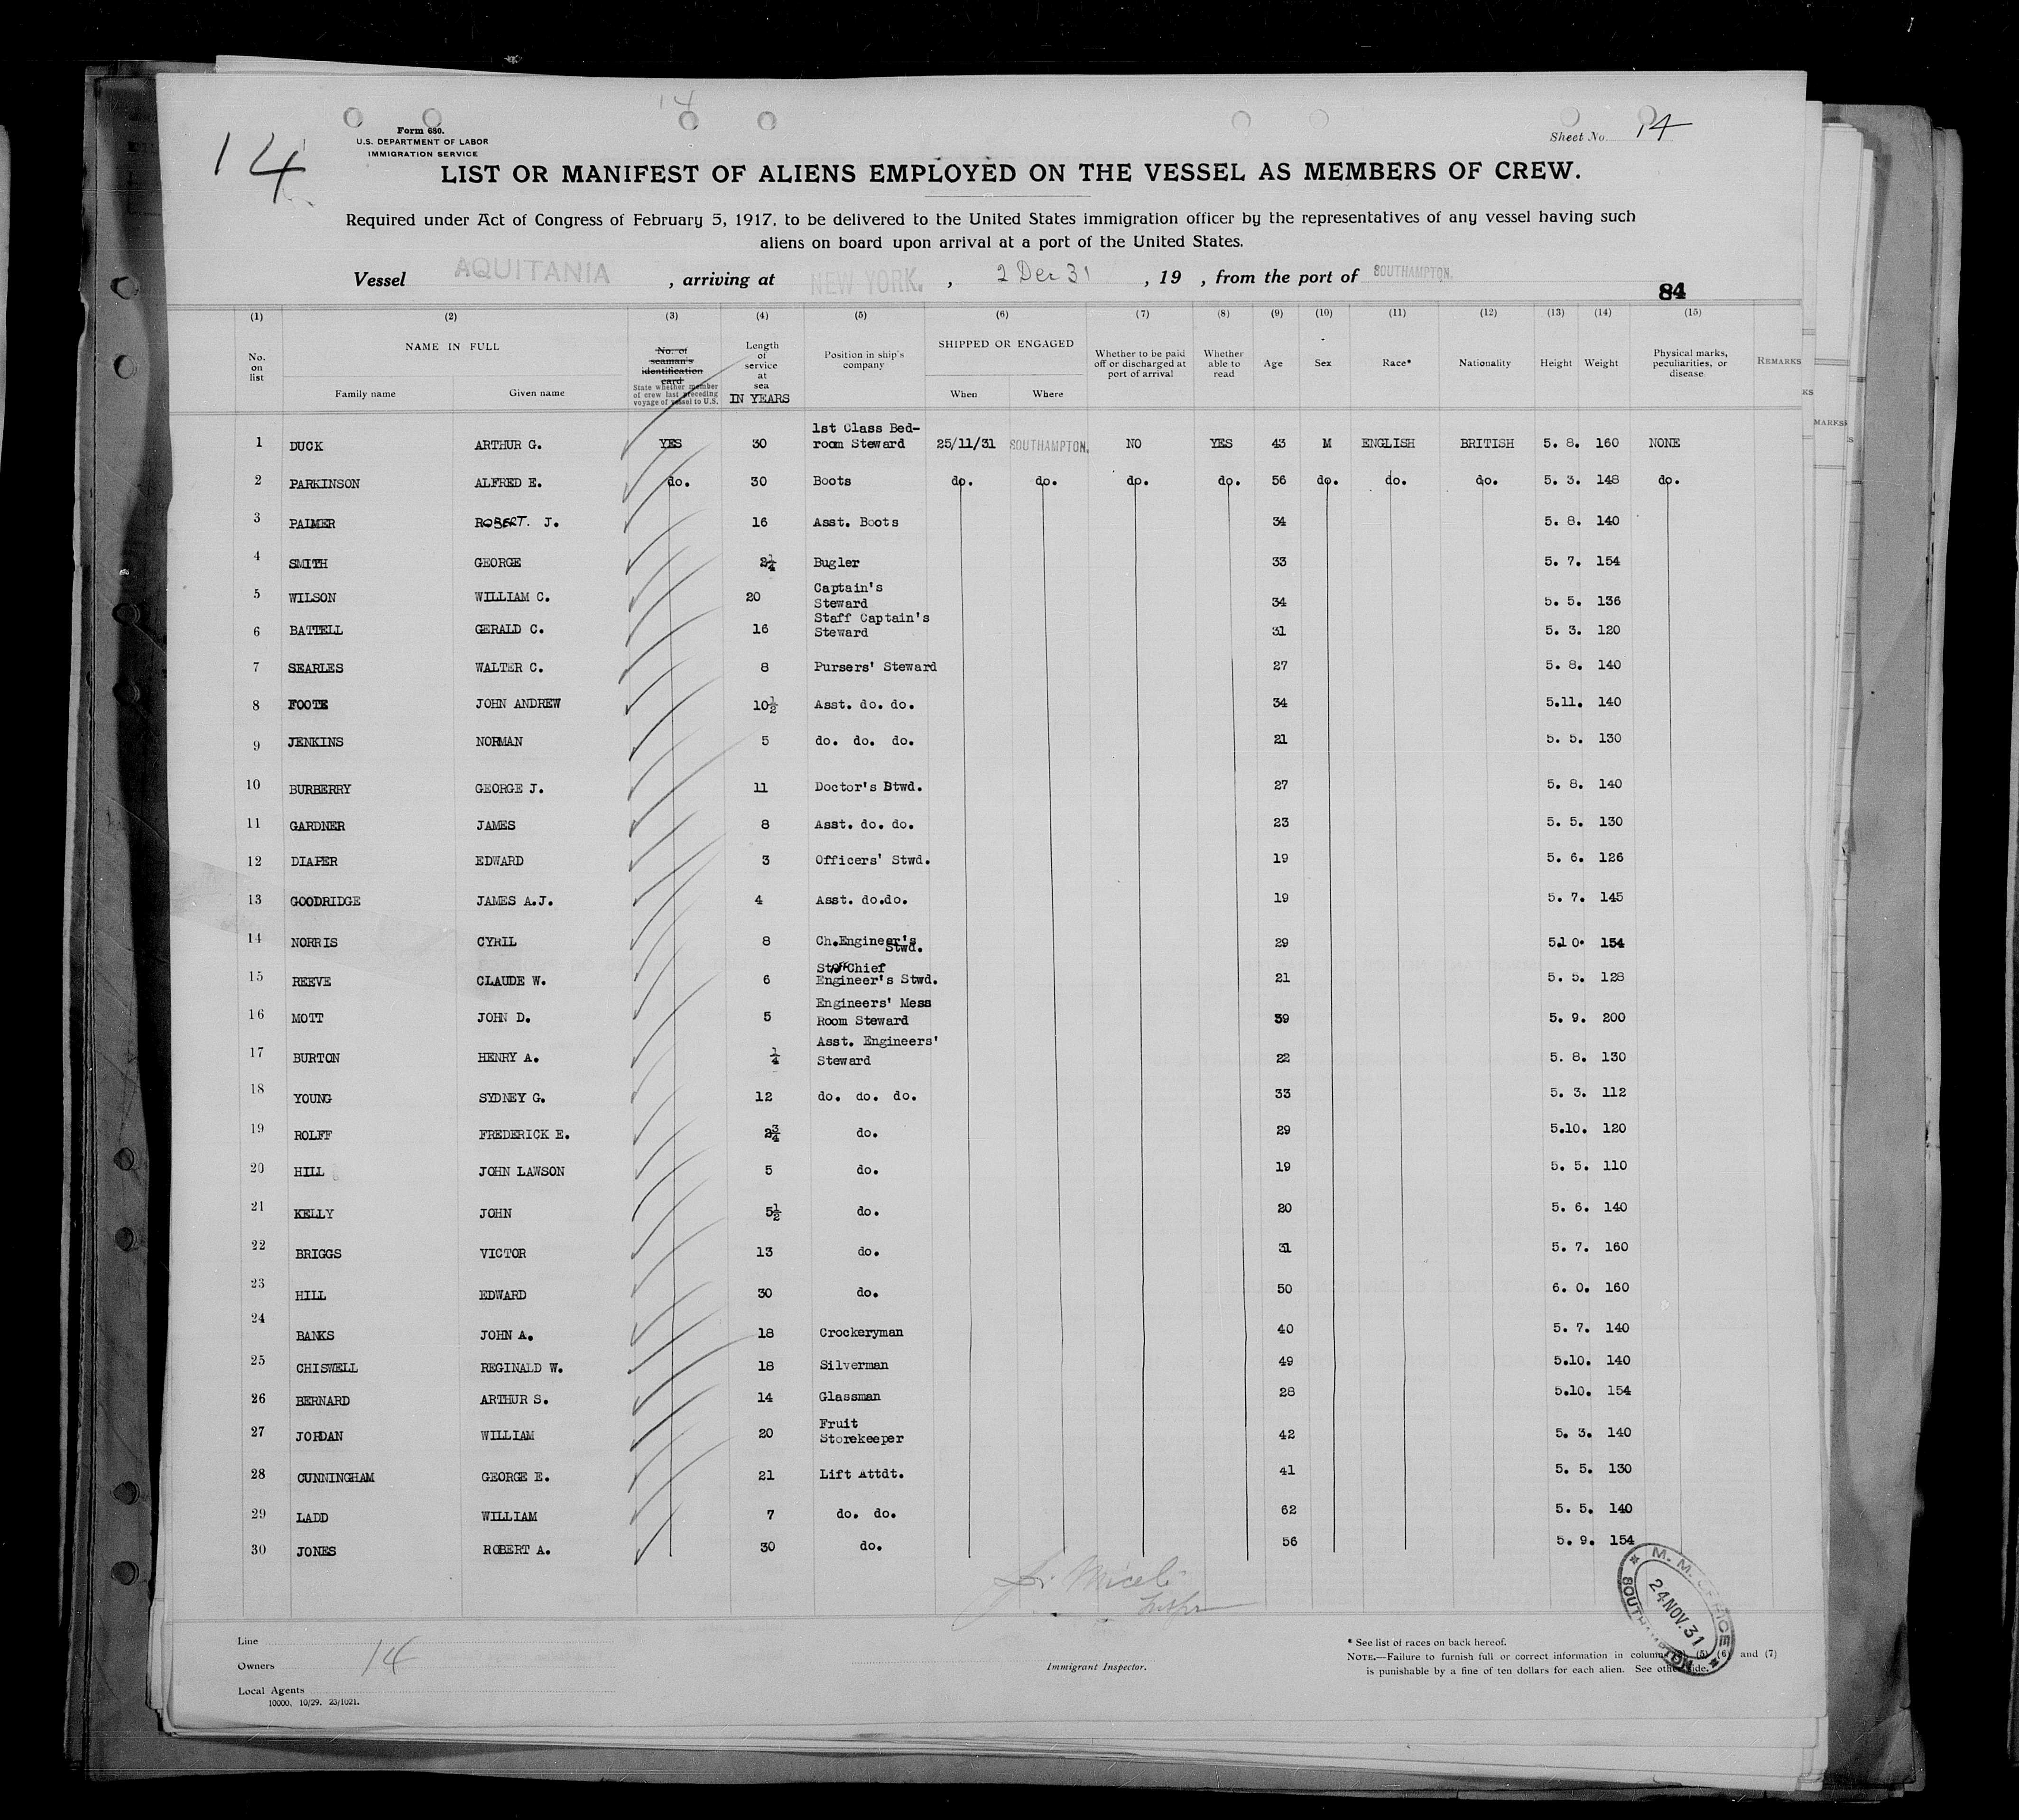 14
14
Form 680.
U.S. DEPARTMENT OF LABOR
IMMIGRATION SERVICE
Sheet No. 14
LIST OR MANIFEST OF ALIENS EMPLOYED ON THE VESSEL AS MEMBERS OF CREW.
Required under Act of Congress of February 5, 1917, to be delivered to the United States immigration officer by the representatives of any vessel having such
aliens on board upon arrival at a port of the United States.
Vessel AQUITANIA , arriving at NEW YORK. , 2 Dec 31 , 19 , from the port of SOUTHAMPTON.
84
(1) (2) (3) (4) (5) (6) (7) (8) (9) (10) (11) (12) (13) (14) (15)
No. on list NAME IN FULL Family name Given name No. of seaman's identification card State whether member of crew last preceding voyage of vessel to U.S. Length of service at sea IN YEARS Position in ship's company SHIPPED OR ENGAGED When Where Whether to be paid off or discharged at port of arrival Whether able to read Age Sex Race* Nationality Height Weight Physical marks, peculiarities, or disease. REMARKS
1 DUCK ARTHUR G. YES 30 1st Class Bed-room Steward 25/11/31 SOUTHAMPTON. NO YES 43 M ENGLISH BRITISH 5. 8. 160 NONE
2 PARKINSON ALFRED E. do. 30 Boots do. do. do. do. 56 do. do. do. 5. 3. 148 do.
3 PALMER ROBERT. J. 16 Asst. Boots 34 5. 8. 140
4 SMITH GEORGE 2¼ Bugler 33 5. 7. 154
5 WILSON WILLIAM C. 20 Captain's Steward 34 5. 5. 136
6 BATTELL GERALD C. 16 Staff Captain's Steward 31 5. 3. 120
7 SEARLES WALTER C. 8 Pursers' Steward 27 5. 8. 140
8 FOOTE JOHN ANDREW 10½ Asst. do. do. 34 5.11. 140
9 JENKINS NORMAN 5 do. do. do. 21 5. 5. 130
10 BURBERRY GEORGE J. 11 Doctor's Stwd. 27 5. 8. 140
11 GARDNER JAMES 8 Asst. do. do. 23 5. 5. 130
12 DIAPER EDWARD 3 Officers' Stwd. 19 5. 6. 126
13 GOODRIDGE JAMES A.J. 4 Asst. do.do. 19 5. 7. 145
14 NORRIS CYRIL 8 Ch.Engineer's Stwd. 29 5.10. 154
15 REEVE CLAUDE W. 6 Staff Chief Engineer's Stwd. 21 5. 5. 128
16 MOTT JOHN D. 5 Engineers' Mess Room Steward 39 5. 9. 200
17 BURTON HENRY A. ¼ Asst. Engineers' Steward 22 5. 8. 130
18 YOUNG SYDNEY G. 12 do. do. do. 33 5. 3. 112
19 ROLFF FREDERICK E. 2¾ do. 29 5.10. 120
20 HILL JOHN LAWSON 5 do. 19 5. 5. 110
21 KELLY JOHN 5½ do. 20 5. 6. 140
22 BRIGGS VICTOR 13 do. 31 5. 7. 160
23 HILL EDWARD 30 do. 50 6. 0. 160
24 BANKS JOHN A. 18 Crockeryman 40 5. 7. 140
25 CHISWELL REGINALD W. 18 Silverman 49 5.10. 140
26 BERNARD ARTHUR S. 14 Glassman 28 5.10. 154
27 JORDAN WILLIAM 20 Fruit Storekeeper 42 5. 3. 140
28 CUNNINGHAM GEORGE E. 21 Lift Attdt. 41 5. 5. 130
29 LADD WILLIAM 7 do. do. 62 5. 5. 140
30 JONES ROBERT A. 30 do. 56 5. 9. 154
24 NOV. 31
Line
Owners 14
Local Agents
10000. 10/29. 23/1021.
Immigrant Inspector.
* See list of races on back hereof.
NOTE.—Failure to furnish full or correct information in columns (5) (6) and (7)
is punishable by a fine of ten dollars for each alien. See other side.